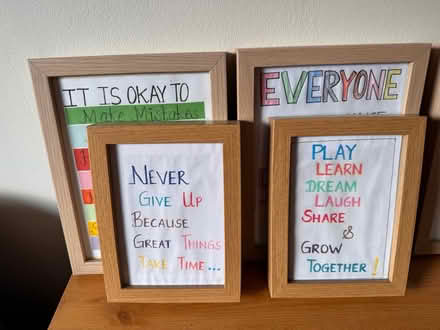 IT IS OKAY TO
Make Mistakes
EVERYONE
NEVER
GIVE UP
BECAUSE
GREAT THINGS
TAKE TIME...
PLAY
LEARN
DREAM
LAUGH
SHARE
&
GROW
TOGETHER!